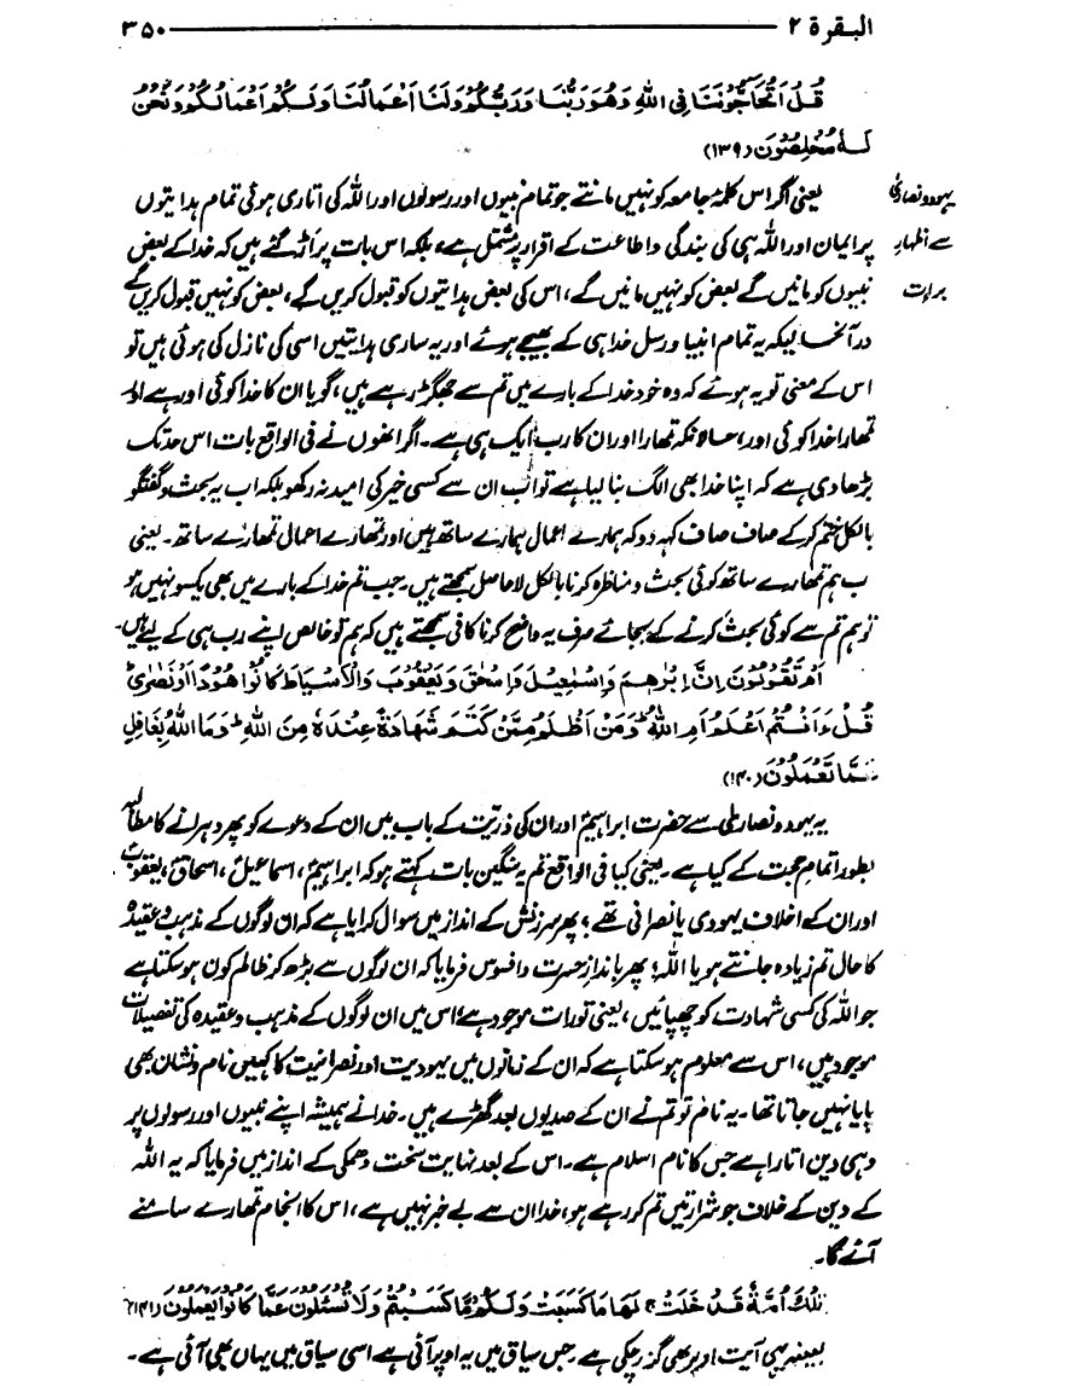 البقرة ۲ ۳۵۰
قُلْ اَتُحَآجُّوْنَنَا فِى اللهِ وَهُوَ رَبُّنَا وَرَبُّكُمْ وَلَنَآ اَعْمَالُنَا وَلَكُمْ اَعْمَالُكُمْ وَنَحْنُ
لَهٗ مُخْلِصُوْنَ (۱۳۹)
یہود و نصاریٰ
سے اظہارِ
براءت
یعنی اگر اس کلمۂ جامعہ کو نہیں مانتے جو تمام نبیوں اور رسولوں اور اللہ کی اتاری ہوئی تمام ہدایتوں
پر ایمان اور اللہ ہی کی بندگی و اطاعت کے اقرار پر مشتمل ہے، بلکہ اس بات پر اڑ گئے ہیں کہ خدا کے بعض
نبیوں کو مانیں گے بعض کو نہیں مانیں گے، اس کی بعض ہدایتوں کو قبول کریں گے، بعض کو نہیں قبول کریں گے
درآنحالیکہ یہ تمام انبیا و رسل خدا ہی کے بھیجے ہوئے اور یہ ساری ہدایتیں اسی کی نازل کی ہوئی ہیں تو
اس کے معنی تو یہ ہوئے کہ وہ خود خدا کے بارے میں تم سے جھگڑ رہے ہیں، گویا ان کا خدا کوئی اور ہے اور
تمھارا خدا کوئی اور، حالانکہ تمھارا اور ان کا رب ایک ہی ہے۔ اگر انھوں نے فی الواقع بات اس حد تک
بڑھا دی ہے کہ اپنا خدا بھی الگ بنا لیا ہے تو اب ان سے کسی خیر کی امید نہ رکھو بلکہ اب یہ بحث و گفتگو
بالکل ختم کر کے صاف صاف کہہ دو کہ ہمارے اعمال ہمارے ساتھ ہیں اور تمھارے اعمال تمھارے ساتھ۔ یعنی
ب ہم تمھارے ساتھ کوئی بحث و مناظرہ کرنا بالکل لاحاصل سمجھتے ہیں۔ جب تم خدا کے بارے میں بھی یکسو نہیں ہو
تو ہم تم سے کوئی بحث کرنے کے بجائے صرف یہ واضح کرنا کافی سمجھتے ہیں کہ ہم تو خالص اپنے رب ہی کے لیے ہیں۔
اَمْ تَقُوْلُوْنَ اِنَّ اِبْرٰهٖمَ وَاِسْمٰعِيْلَ وَاِسْحٰقَ وَيَعْقُوْبَ وَالْاَسْبَاطَ كَانُوْا هُوْدًا اَوْ نَصٰرٰى
قُلْ ءَاَنْتُمْ اَعْلَمُ اَمِ اللهُ وَمَنْ اَظْلَمُ مِمَّنْ كَتَمَ شَهَادَةً عِنْدَهٗ مِنَ اللهِ وَمَا اللهُ بِغَافِلٍ
عَمَّا تَعْمَلُوْنَ (۱۴۰)
یہ یہود و نصاریٰ سے حضرت ابراہیمؑ اور ان کی ذریت کے باب میں ان کے دعوے کو پھر دہرانے کا مطالبہ
بطور اتمامِ حجت کے کیا ہے۔ یعنی کیا فی الواقع تم یہ سنگین بات کہتے ہو کہ ابراہیمؑ، اسماعیلؑ، اسحاقؑ، یعقوبؑ
اور ان کے اخلاف یہودی یا نصرانی تھے؟ پھر سرزنش کے انداز میں سوال کرایا ہے کہ ان لوگوں کے مذہب و عقیدہ
کا حال تم زیادہ جانتے ہو یا اللہ؟ پھر باندازِ حسرت و افسوس فرمایا کہ ان لوگوں سے بڑھ کر ظالم کون ہو سکتا ہے
جو اللہ کی کسی شہادت کو چھپائیں، یعنی تورات موجود ہے، اس میں ان لوگوں کے مذہب و عقیدہ کی تفصیلات
موجود ہیں، اس سے معلوم ہو سکتا ہے کہ ان کے زمانوں میں یہودیت اور نصرانیت کا کہیں نام و نشان بھی
پایا نہیں جاتا تھا۔ یہ نام تو تم نے ان کے صدیوں بعد گھڑے ہیں۔ خدا نے ہمیشہ اپنے نبیوں اور رسولوں پر
وہی دین اتارا ہے جس کا نام اسلام ہے۔ اس کے بعد نہایت سخت دھمکی کے انداز میں فرمایا کہ یہ اللہ
کے دین کے خلاف جو شرارتیں تم کر رہے ہو، خدا ان سے بے خبر نہیں ہے، اس کا انجام تمھارے سامنے
آئے گا۔
تِلْكَ اُمَّةٌ قَدْ خَلَتْ لَهَا مَا كَسَبَتْ وَلَكُمْ مَّا كَسَبْتُمْ وَلَا تُسْئَلُوْنَ عَمَّا كَانُوْا يَعْمَلُوْنَ (۱۴۱)
بعینہ یہی آیت اوپر بھی گزر چکی ہے۔ جس سیاق میں یہ اوپر آئی ہے اسی سیاق میں یہاں بھی آئی ہے۔